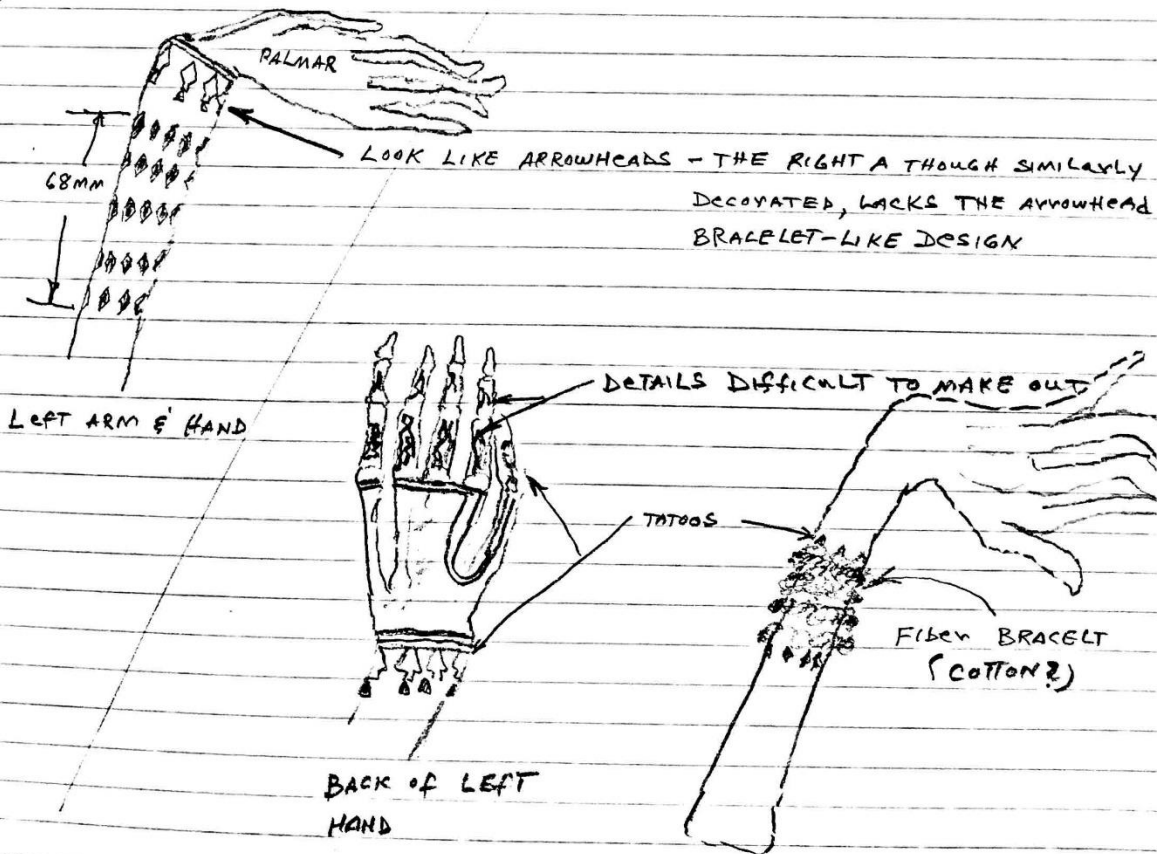 PALMAR
LOOK LIKE ARROWHEADS - THE RIGHT A THOUGH SIMILARLY
DECORATED, LACKS THE ARROWHEAD
BRACELET-LIKE DESIGN
68mm
LEFT ARM & HAND
DETAILS DIFFICULT TO MAKE OUT
TATOOS
FIBER BRACELT
(COTTON?)
BACK OF LEFT
HAND